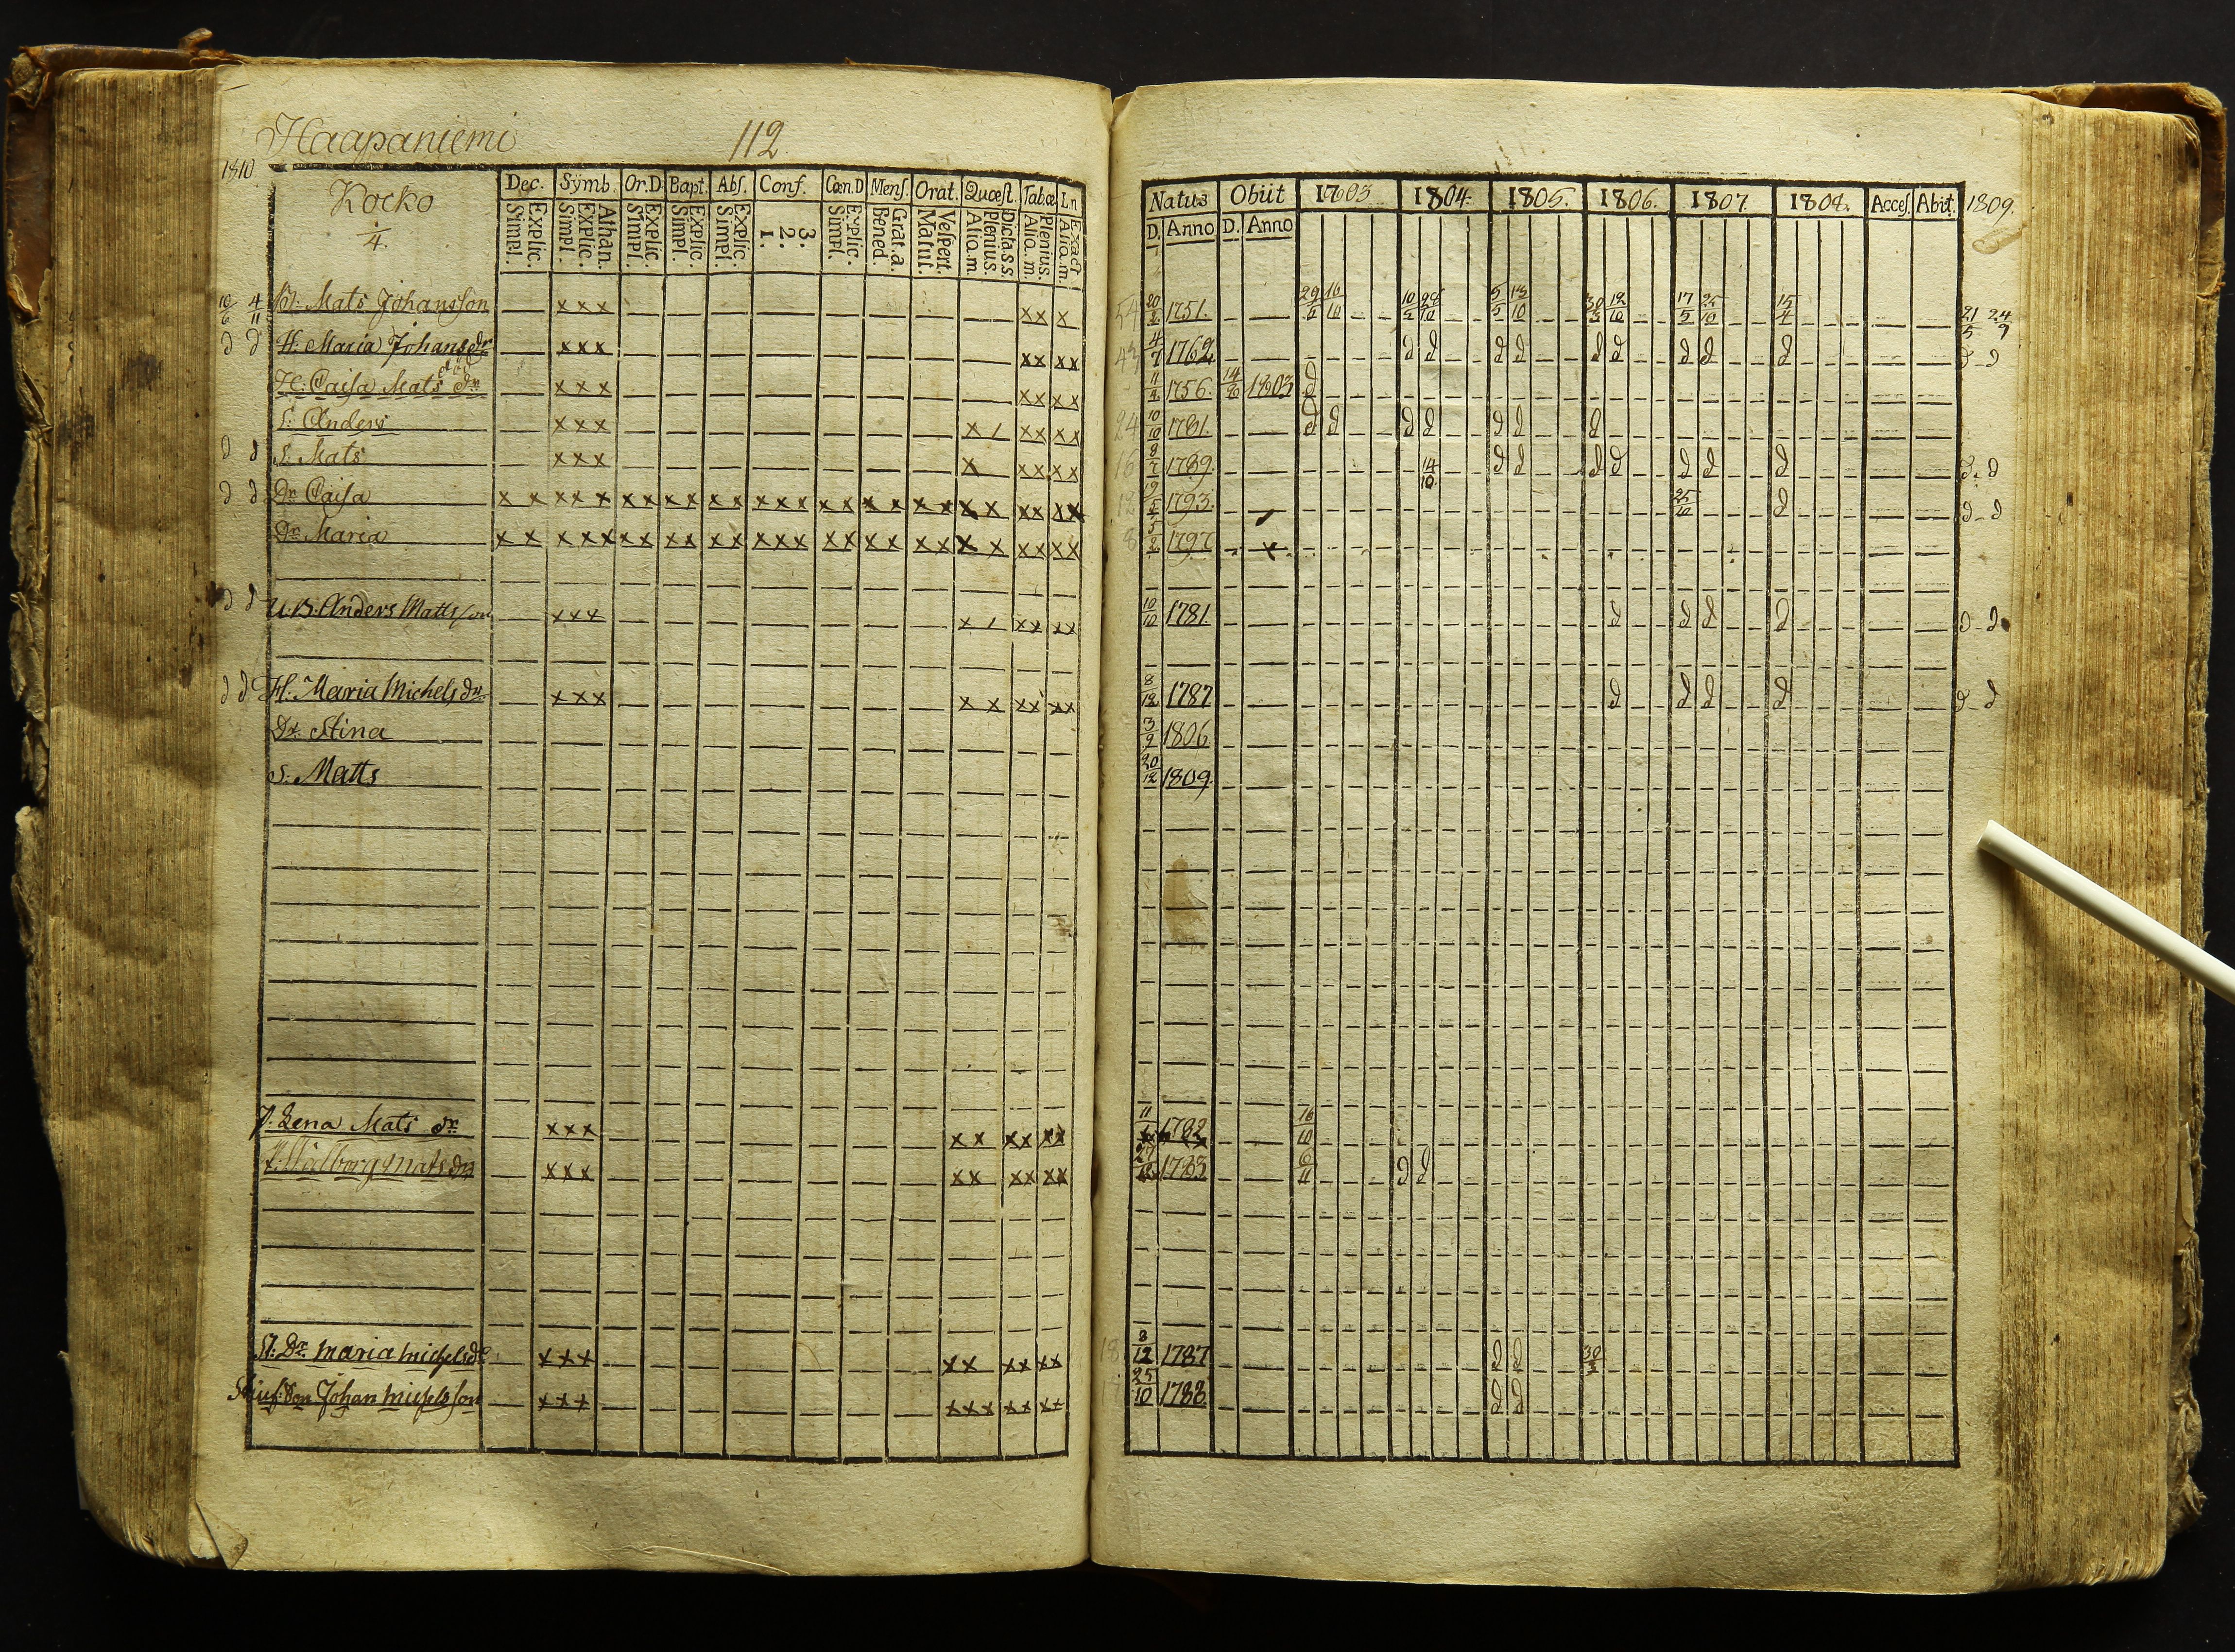 Haapaniemi 112.
1810.
Kocko
1/4.
Dec. Symb. Or.D. Bapt. Abs. Conf. Cœn.D Mens. Orat. Quœst. Tabœ Ln
Explic. Simpl. Athan. Explic. Simpl. Explic. Simpl. Explic. Simpl. Explic. Simpl. 3. 2. 1. Explic. Simpl. Grat. a. Bened. Vespert. Matut. Dicta.s.s. Plenius. Alio.m. Plenius. Alio.m. Exact Alio.m.
10/6 4/11 B: Mats Johansson xxx xx x
d d H. Maria Johansdr xxx xx xx
H: Caisa Mats dr xxx xx xx
S: Anders xxx x / xx xx
d d S. Mats xxx x xx xx
d d Dr Caisa x x xx x xx xx xx xxx xx xx xx x x xx xx
Dr Maria x x xxx xx xx xx xxx xx xx xx x x xx xx
d d U.B. Anders Mattsson xxx x / xx xx
d d H. Maria Michelsdr xxx x x xx xx
Dr. Stina
S. Matts
P. Lena Mats dr xxx x x xx xx
P. Walborg Mats dr xxx xx xx xx
Dr Maria Michelsdr xxx xx xx xx
Stiuf: Son Johan Michelsson xxx xxx xx xx
Natus Obiit 1803 1804. 1805. 1806. 1807. 1808. Acces. Abit. 1809.
D. Anno D. Anno
54 20/2 1751. 29/5 16/10 10/5 28/10 5/5 13/10 30/3 12/10 17/5 25/10 15/4 21/5 24/9
43 4/7 1762 d d d d d d d d d d - d
11/4 1756. 14/8 1803. d
24 10/10 1781. d d d d d d d
16 8/7 1789. 14/10 d d d d d d d d - d
12 19/5 1793. 25/10 d d - d
8 5/2 1797 x
10/10 1781. d d d d d - d
8/12 1787 d d d d d - d
3/9 1806
20/12 1809.
11 1782 16/10
27/12 1783 6/11 d d
18 8/12 1787 d d 30/3
25/10 1788. d d